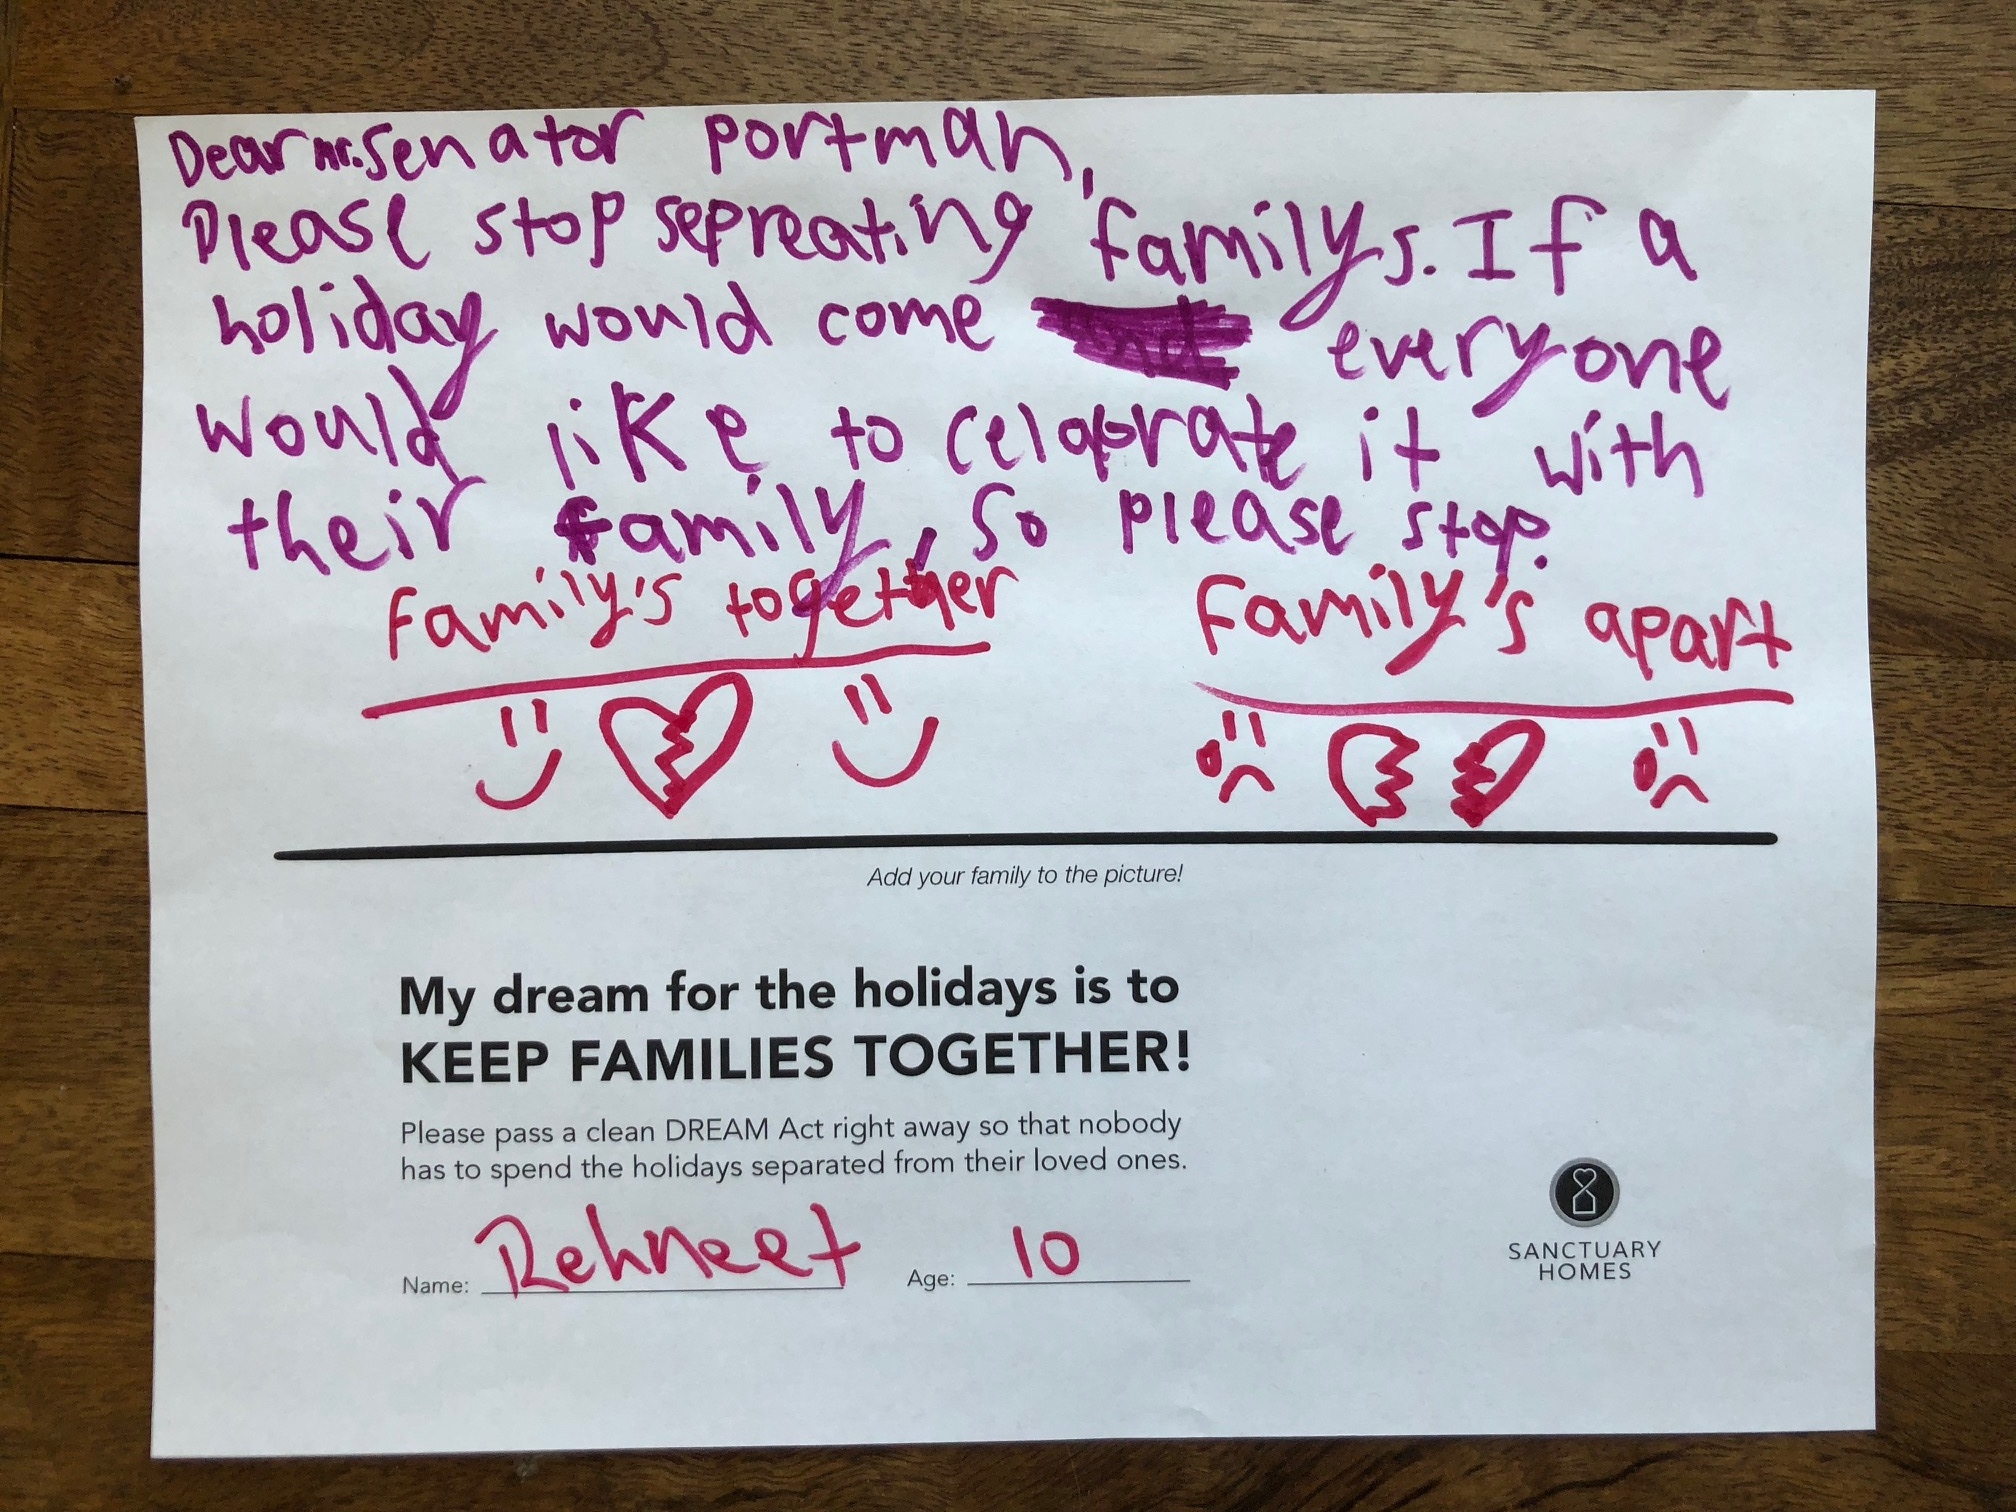 Dear mr. Senator portman,
Please stop sepreating familys. If a
holiday would come everyone
would like to celabrate it with
their family, so please stop.
family's together family's apart
Add your family to the picture!
My dream for the holidays is to
KEEP FAMILIES TOGETHER!
Please pass a clean DREAM Act right away so that nobody
has to spend the holidays separated from their loved ones.
Name: Rehneet Age: 10
SANCTUARY
HOMES